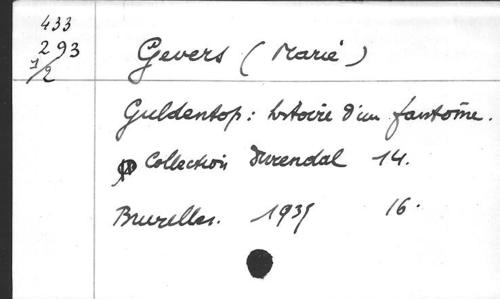 433
293
1/2
Gevers (Marie)
Guldentop: histoire d'un fantôme.
Collection Durendal 14.
Bruxelles. 1935 16.